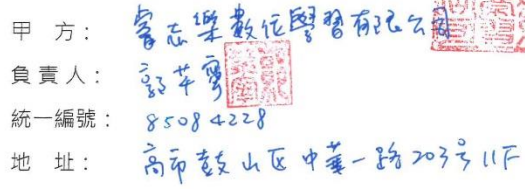 甲方：睿志樂數位學習有限公司
負責人：郭芊寧
統一編號：85084228
地址：高市鼓山區中華一路203号11F